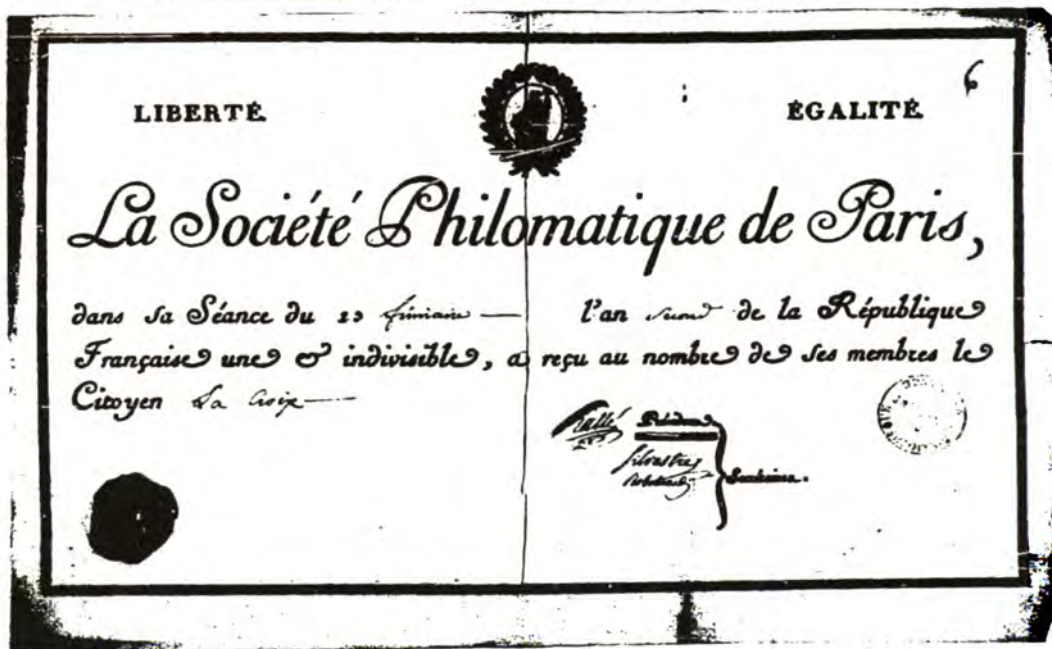 6
LIBERTÉ ÉGALITÉ
La Société Philomatique de Paris,
dans sa Séance du 23 frimaire — l'an second de la République
Française une & indivisible, a reçu au nombre de ses membres le
Citoyen La Croix —
Hallé Président
Silvestre
Secrétaires.